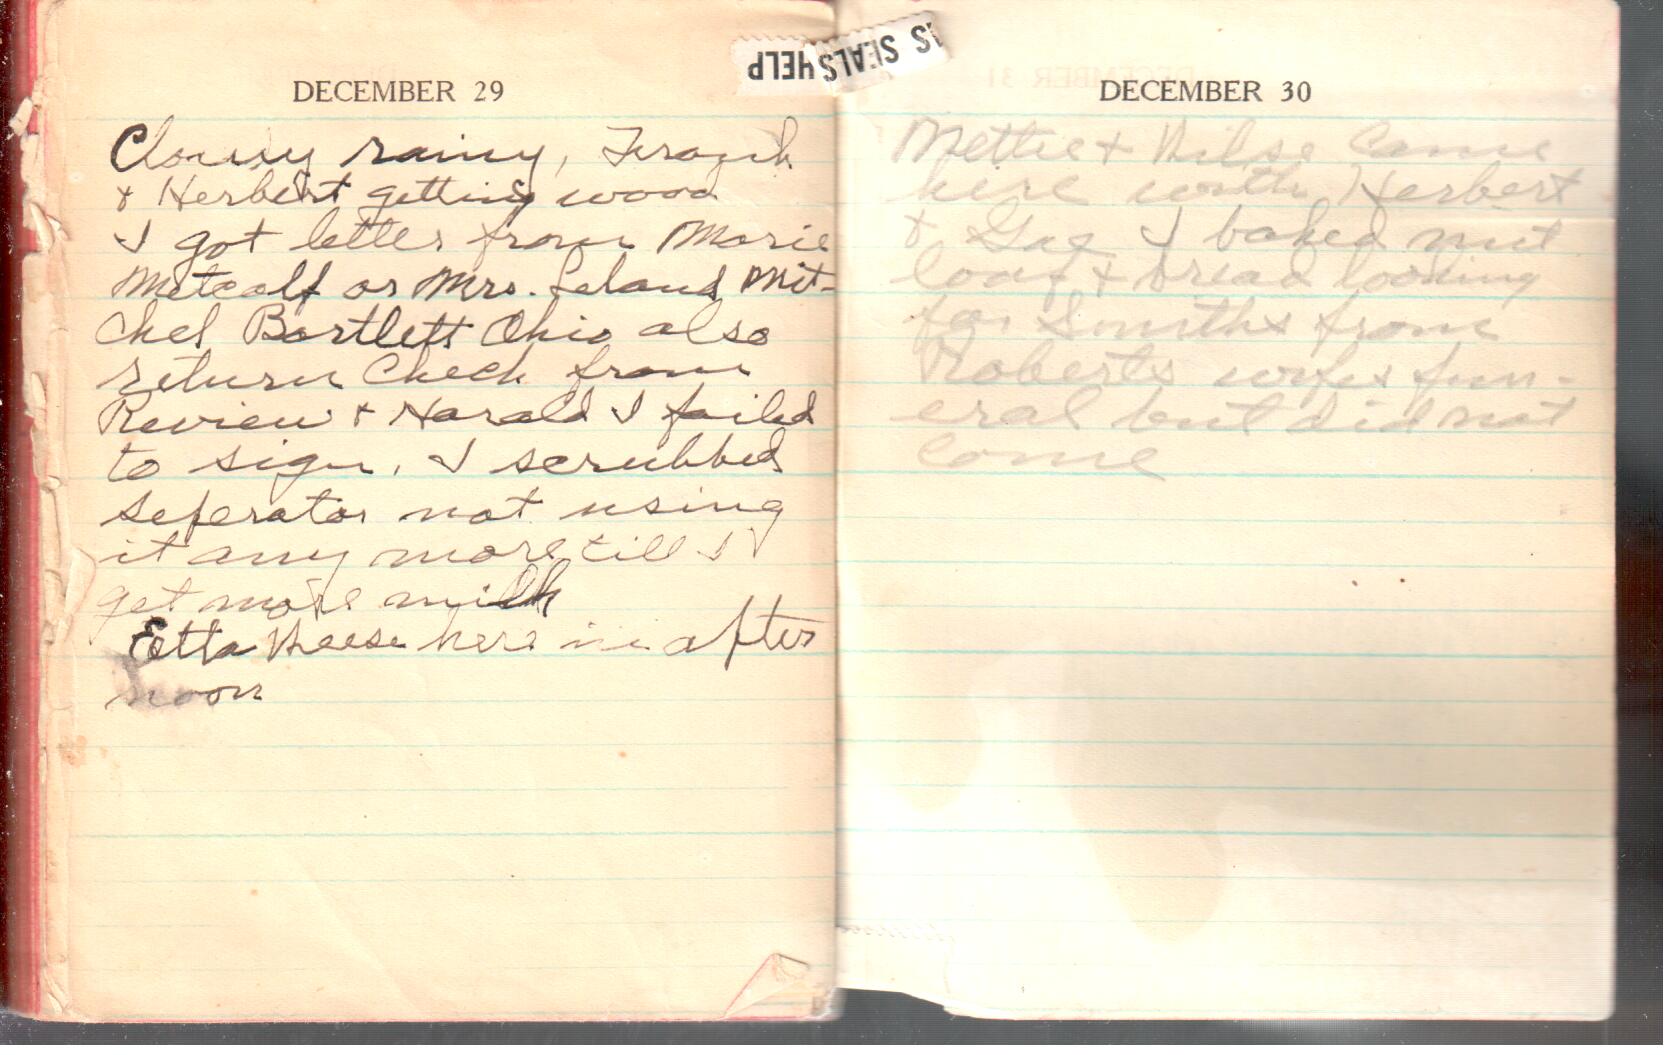 IS SEALS HELP
DECEMBER 29
Cloudy rainy, Frank
& Herbert getting wood
I got letter from Marie
Metcalf or Mrs. Leland Mit-
chel Bartlett Ohio also
return Check from
Review & Harald I failed
to sign. I scrubbed
seperator not using
it any more till I
get more milk
Etta Reese here in after
noon
DECEMBER 30
Mettie & came
here with Herbert
& I baked nut
loaf & bread looking
for Smiths from
Roberts wifes fun-
eral but did not
come